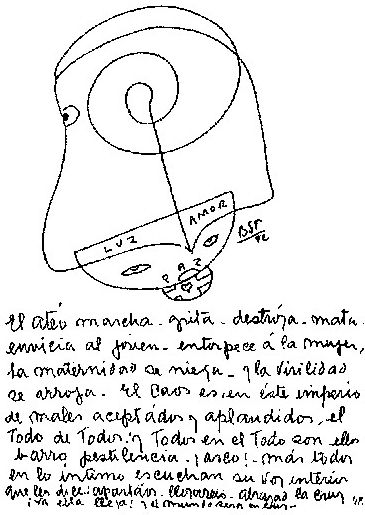 LUZ
AMOR
PAZ
BSP
72
El ateo marcha - grita - destroza - mata
envicia al joven - entorpece á la mujer,
la maternidad se niega - y la virilidad
se arroja - El Caos es, en éste imperio
de males aceptados y aplaudidos, el
Todo de Todos! y Todos en el Todo son ellos
barro! pestilencia. ¡asco! - más todos
en lo íntimo escuchan su voz interior
que les dice: apartáos - lloraréis - abrazad la cruz
¡ya ella llega! y el mundo será